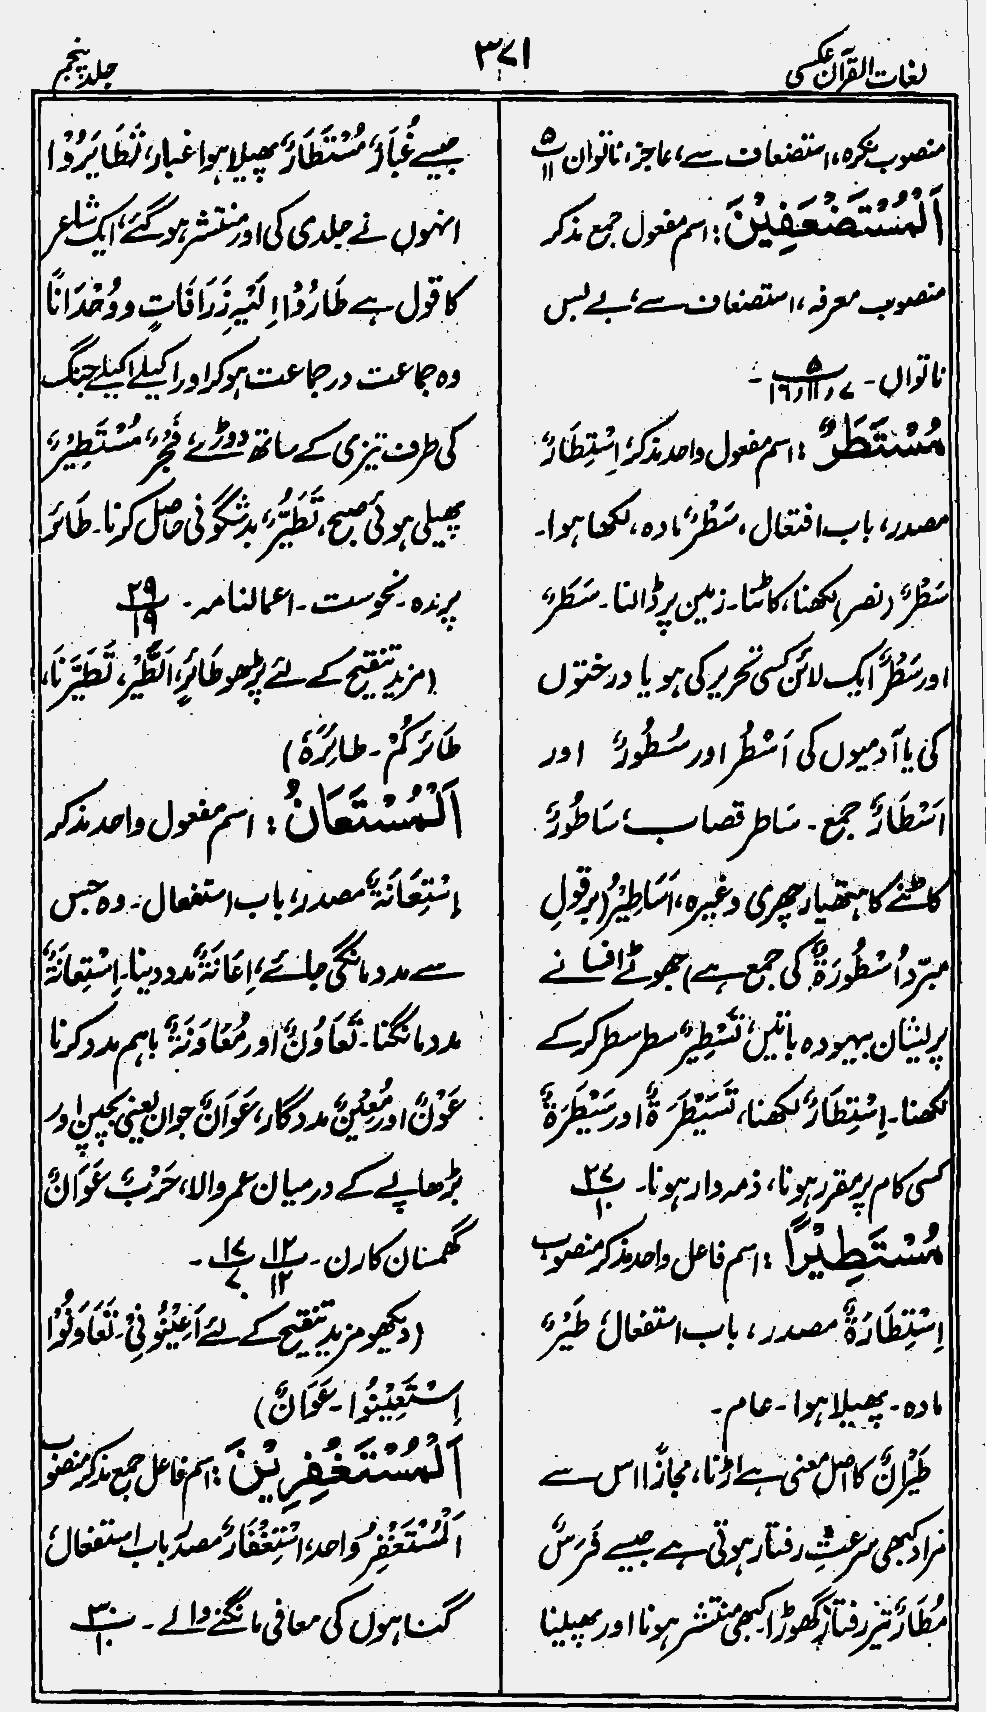 لغات القرآن عکسی
۳۷۱
جلد پنجم
منصوب نکرہ، استضعاف سے، عاجز، ناتواں ۵/۱۱
اَلْمُسْتَضْعَفِیْنَ: اسم مفعول جمع مذکر
منصوب معرفہ، استضعاف سے، بے بس
ناتواں۔ ۵/۷، ۱۱، ۱۶۔
مُسْتَطَرٌ: اسم مفعول واحد مذکر، اِسْتِطَارٌ
مصدر، باب افتعال، سَطْرٌ مادہ، لکھا ہوا۔
سَطْرٌ (نصر) لکھنا، کاٹنا۔ زمین پر ڈالنا۔ سَطَرٌ
اور سَطْرٌ ایک لائن کسی تحریر کی ہو یا درختوں
کی یا آدمیوں کی اَسْطُر اور سُطُورٌ اور
اَسْطَارٌ جمع۔ ساطر قصاب، سَاطُورٌ
کاٹنے کا ہتھیار چھری وغیرہ، اَسَاطِیْرُ (برقولِ
مبرّد اُسْطُورَۃٌ کی جمع ہے) جھوٹے افسانے
پریشان بیہودہ باتیں، تَسْطِیْرٌ سطر سطر کر کے
لکھنا۔ اِسْتِطَارٌ لکھنا، تَسَیْطَرَۃٌ اور سَیْطَرَۃٌ
کسی کام پر مقرر ہونا، ذمہ دار ہونا۔ ۲۷/۱۰
مُسْتَطِیْرًا: اسم فاعل واحد مذکر منصوب
اِسْتِطَارَۃٌ مصدر، باب استفعال طَیْرٌ
مادہ۔ پھیلا ہوا۔ عام۔
طَیْرَانٌ کا اصل معنی ہے اڑنا، مجازًا اس سے
مراد کبھی سرعتِ رفتار ہوتی ہے جیسے فَرَسٌ
مُطَارٌ تیز رفتار گھوڑا کبھی منتشر ہونا اور پھیلنا
جیسے غُبَارٌ مُسْتَطَارٌ پھیلا ہوا غبار، تَطَایَرُوْا
انہوں نے جلدی کی اور منتشر ہو گئے، ایک شاعر
کا قول ہے طَارُوْا اِلَیْہِ زَرَافَاتٍ و وُحْدَانًا
وہ جماعت در جماعت ہو کر اور اکیلے اکیلے جنگ
کی طرف تیزی کے ساتھ دوڑے، فَجْرٌ مُسْتَطِیْرٌ
پھیلی ہوئی صبح، تَطَیُّرٌ بدشگونی حاصل کرنا۔ طَائر
پرندہ۔ نحوست۔ اعمالنامہ۔ ۲۹/۱۹
(مزید تنقیح کے لئے پڑھو طَائرٍ، اَلطَّیْر، تَطَیَّرْنَا،
طَائرکُمْ۔ طائِرُہٗ)
اَلْمُسْتَعَانُ: اسم مفعول واحد مذکر
اِسْتِعَانَۃٌ مصدر، باب استفعال۔ وہ جس
سے مدد مانگی جائے، اِعَانَۃٌ مدد دینا۔ اِسْتِعَانَۃٌ
مدد مانگنا۔ تَعَاوُنٌ اور مُعَاوَنَۃٌ باہم مدد کرنا
عَوْنٌ اور مُعِیْنٌ مددگار، عَوَانٌ جوان یعنی بچپن اور
بڑھاپے کے درمیان عمر والا، حَرْبٌ عَوَانٌ
گھمسان کا رن۔ ۱۲/۱۲ ۱۷/۷۔
(دیکھو مزید تنقیح کے لئے اَعِیْنُوْنِیْ۔ تَعَاوَنُوْا
اِسْتَعِیْنُوا۔ عَوَانٌ)
اَلْمُسْتَغْفِرِیْنَ: اسم فاعل جمع مذکر منصوب
اَلْمُسْتَغْفِرُ واحد، اِسْتِغْفَارٌ مصدر باب استفعال
گناہوں کی معافی مانگنے والے۔ ۳/۱۰